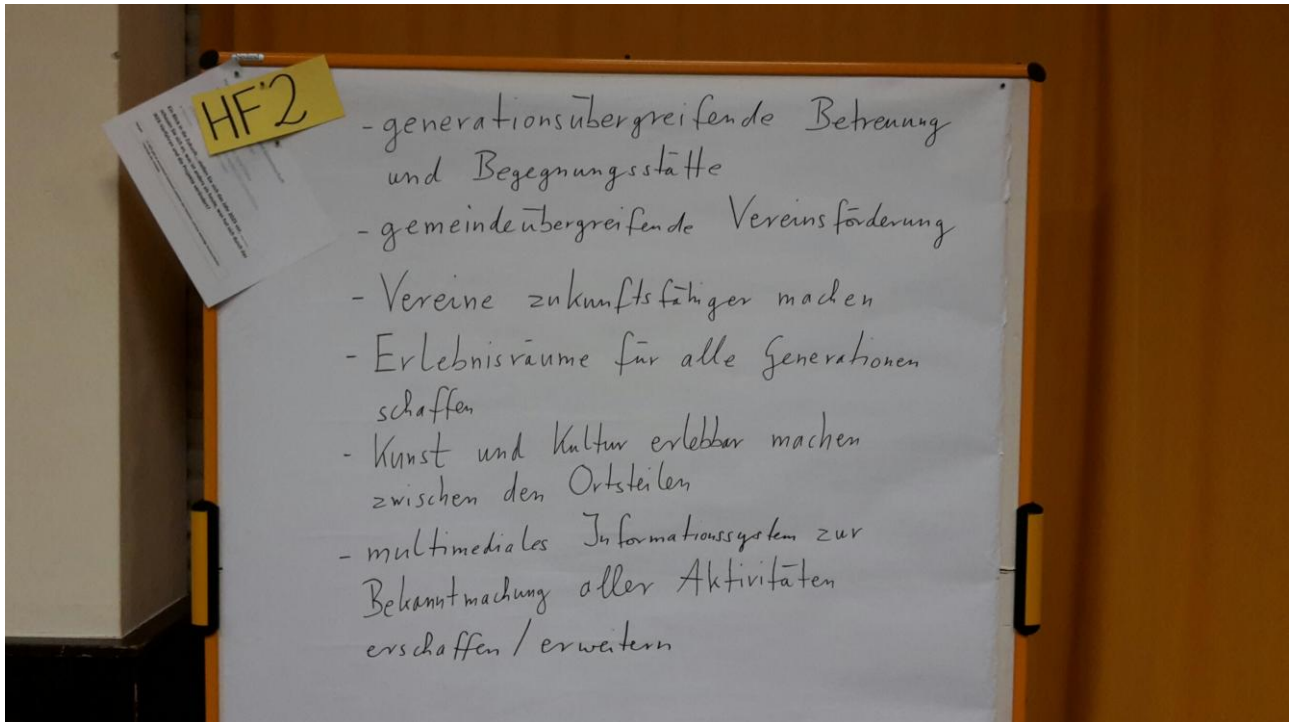 HF 2
- generationsübergreifende Betreuung
und Begegnungsstätte
- gemeindeübergreifende Vereinsförderung
- Vereine zukunftsfähiger machen
- Erlebnisräume für alle Generationen
schaffen
- Kunst und Kultur erlebbar machen
zwischen den Ortsteilen
- multimediales Informationssystem zur
Bekanntmachung aller Aktivitäten
erschaffen / erweitern